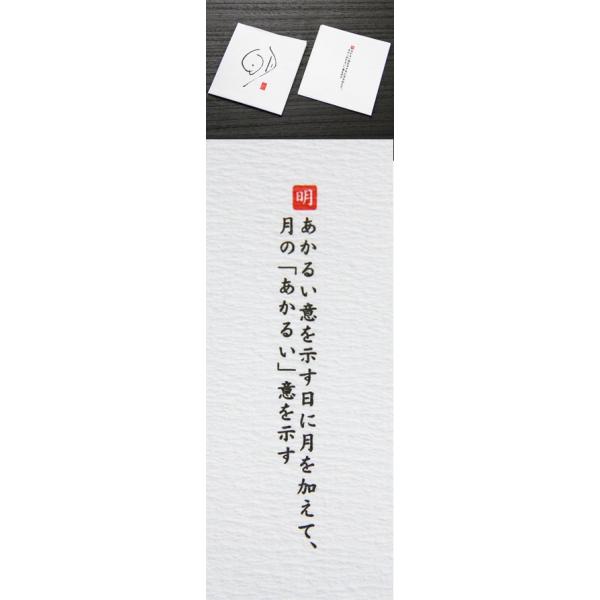 明
あかるい意を示す日に月を加えて、
月の「あかるい」意を示す